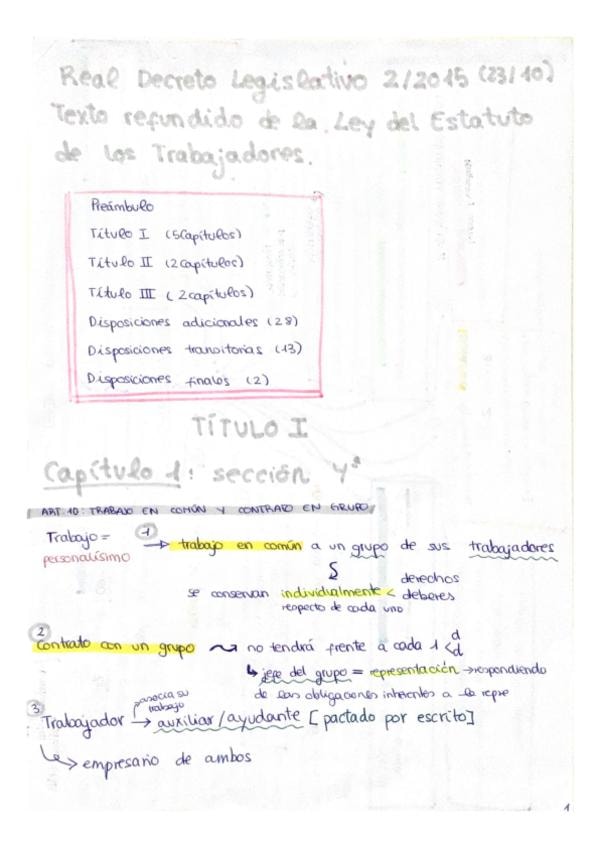 Real Decreto Legislativo 2/2015 (23/10)
Texto refundido de la Ley del Estatuto
de los Trabajadores.
Preámbulo
Título I (5 Capítulos)
Título II (2 capítulos)
Título III (2 capítulos)
Disposiciones adicionales (28)
Disposiciones transitorias (13)
Disposiciones finales (2)
TÍTULO I
Capítulo 1: sección 4ª
ART. 10: TRABAJO EN COMÚN Y CONTRATO EN GRUPO
Trabajo = personalísimo
1 → trabajo en común a un grupo de sus trabajadores
se conservan individualmente < derechos deberes
respecto de cada uno
2 Contrato con un grupo no tendrá frente a cada 1 < d d
↳ jefe del grupo = representación → respondiendo
de las obligaciones inherentes a la repre
3 Trabajador → auxiliar/ayudante [pactado por escrito]
asocia su trabajo
↳ empresario de ambos
1